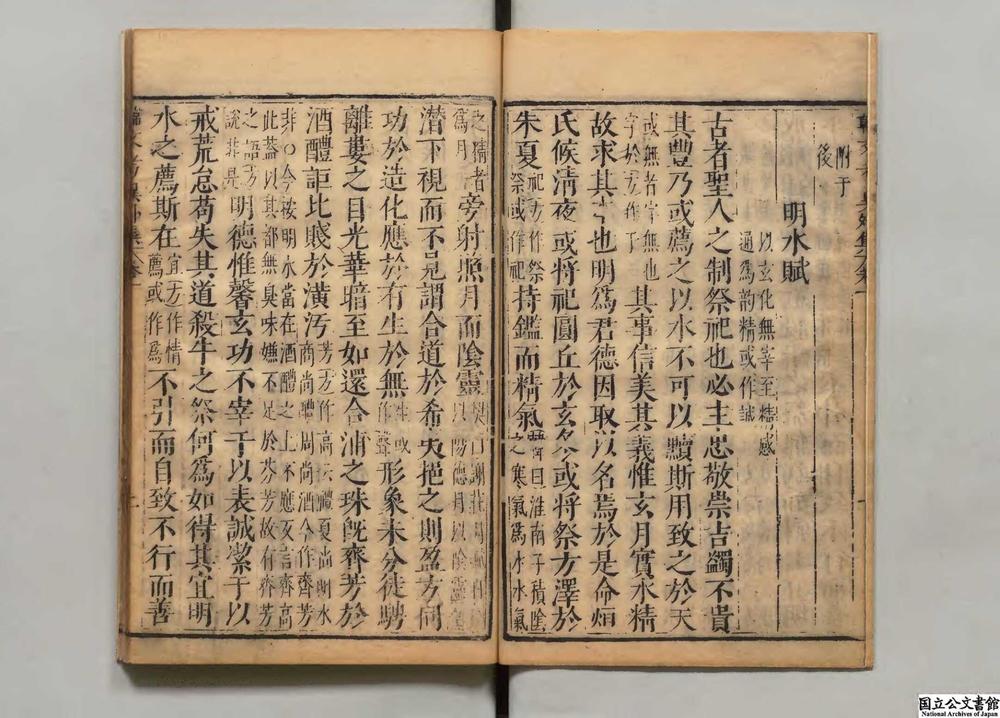 附于
後
明水賦
以玄化無宰至精感
通爲韵精或作誠
古者聖人之制祭祀也必主忠敬崇吉蠲不貴
其豐乃或薦之以水不可以黷斯用致之於天
或無者字無也
字於方作于
其事信美其義惟玄月實水精
故求其本也明爲君德因取以名焉於是命烜
氏候淸夜或將祀圓丘於玄冬或將祭方澤於
朱夏
祀方作祭
祭或作祀
持鑑而精氣
曰淮南子積陰
之寒氣爲水水氣
之精者
爲月
旁射照月而陰靈
樊曰謝莊月賦曰日
以陽德月以陰靈
潛下視而不見謂合道於希夷挹之則盈方同
功於造化應於有生於無
性或
作聲
形象未分徒騁
離婁之目光華暗至如還合浦之珠旣齊芳於
酒醴詎比賤於潢汚
芳方作高云醴夏尚明水
商尚醴周尚酒今作齊芳
非○今按明水當在酒醴之上不應反言齊高
此葢以其部無臭味嫌不足於芬芳故有齊芳
之語方
說非是
明德惟馨玄功不宰于以表誠潔于以
戒荒怠苟失其道殺牛之祭何爲如得其宜明
水之薦斯在
宜方作情
薦或作爲
不引而自致不行而善
国立公文書館
National Archives of Japan